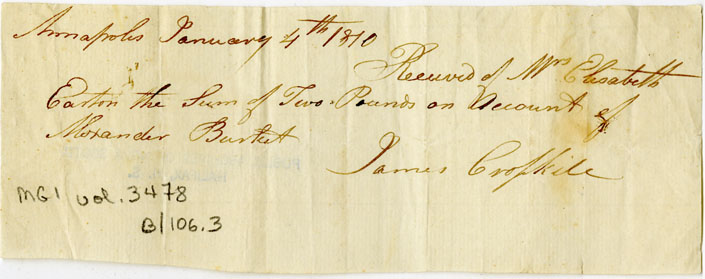 Annapolis January 4th 1810
Received of Mrs Elisabeth
Easton the Sum of Two Pounds on Account of
Alexander Burket
James Crosskile
MG1 vol. 3478
B/106.3